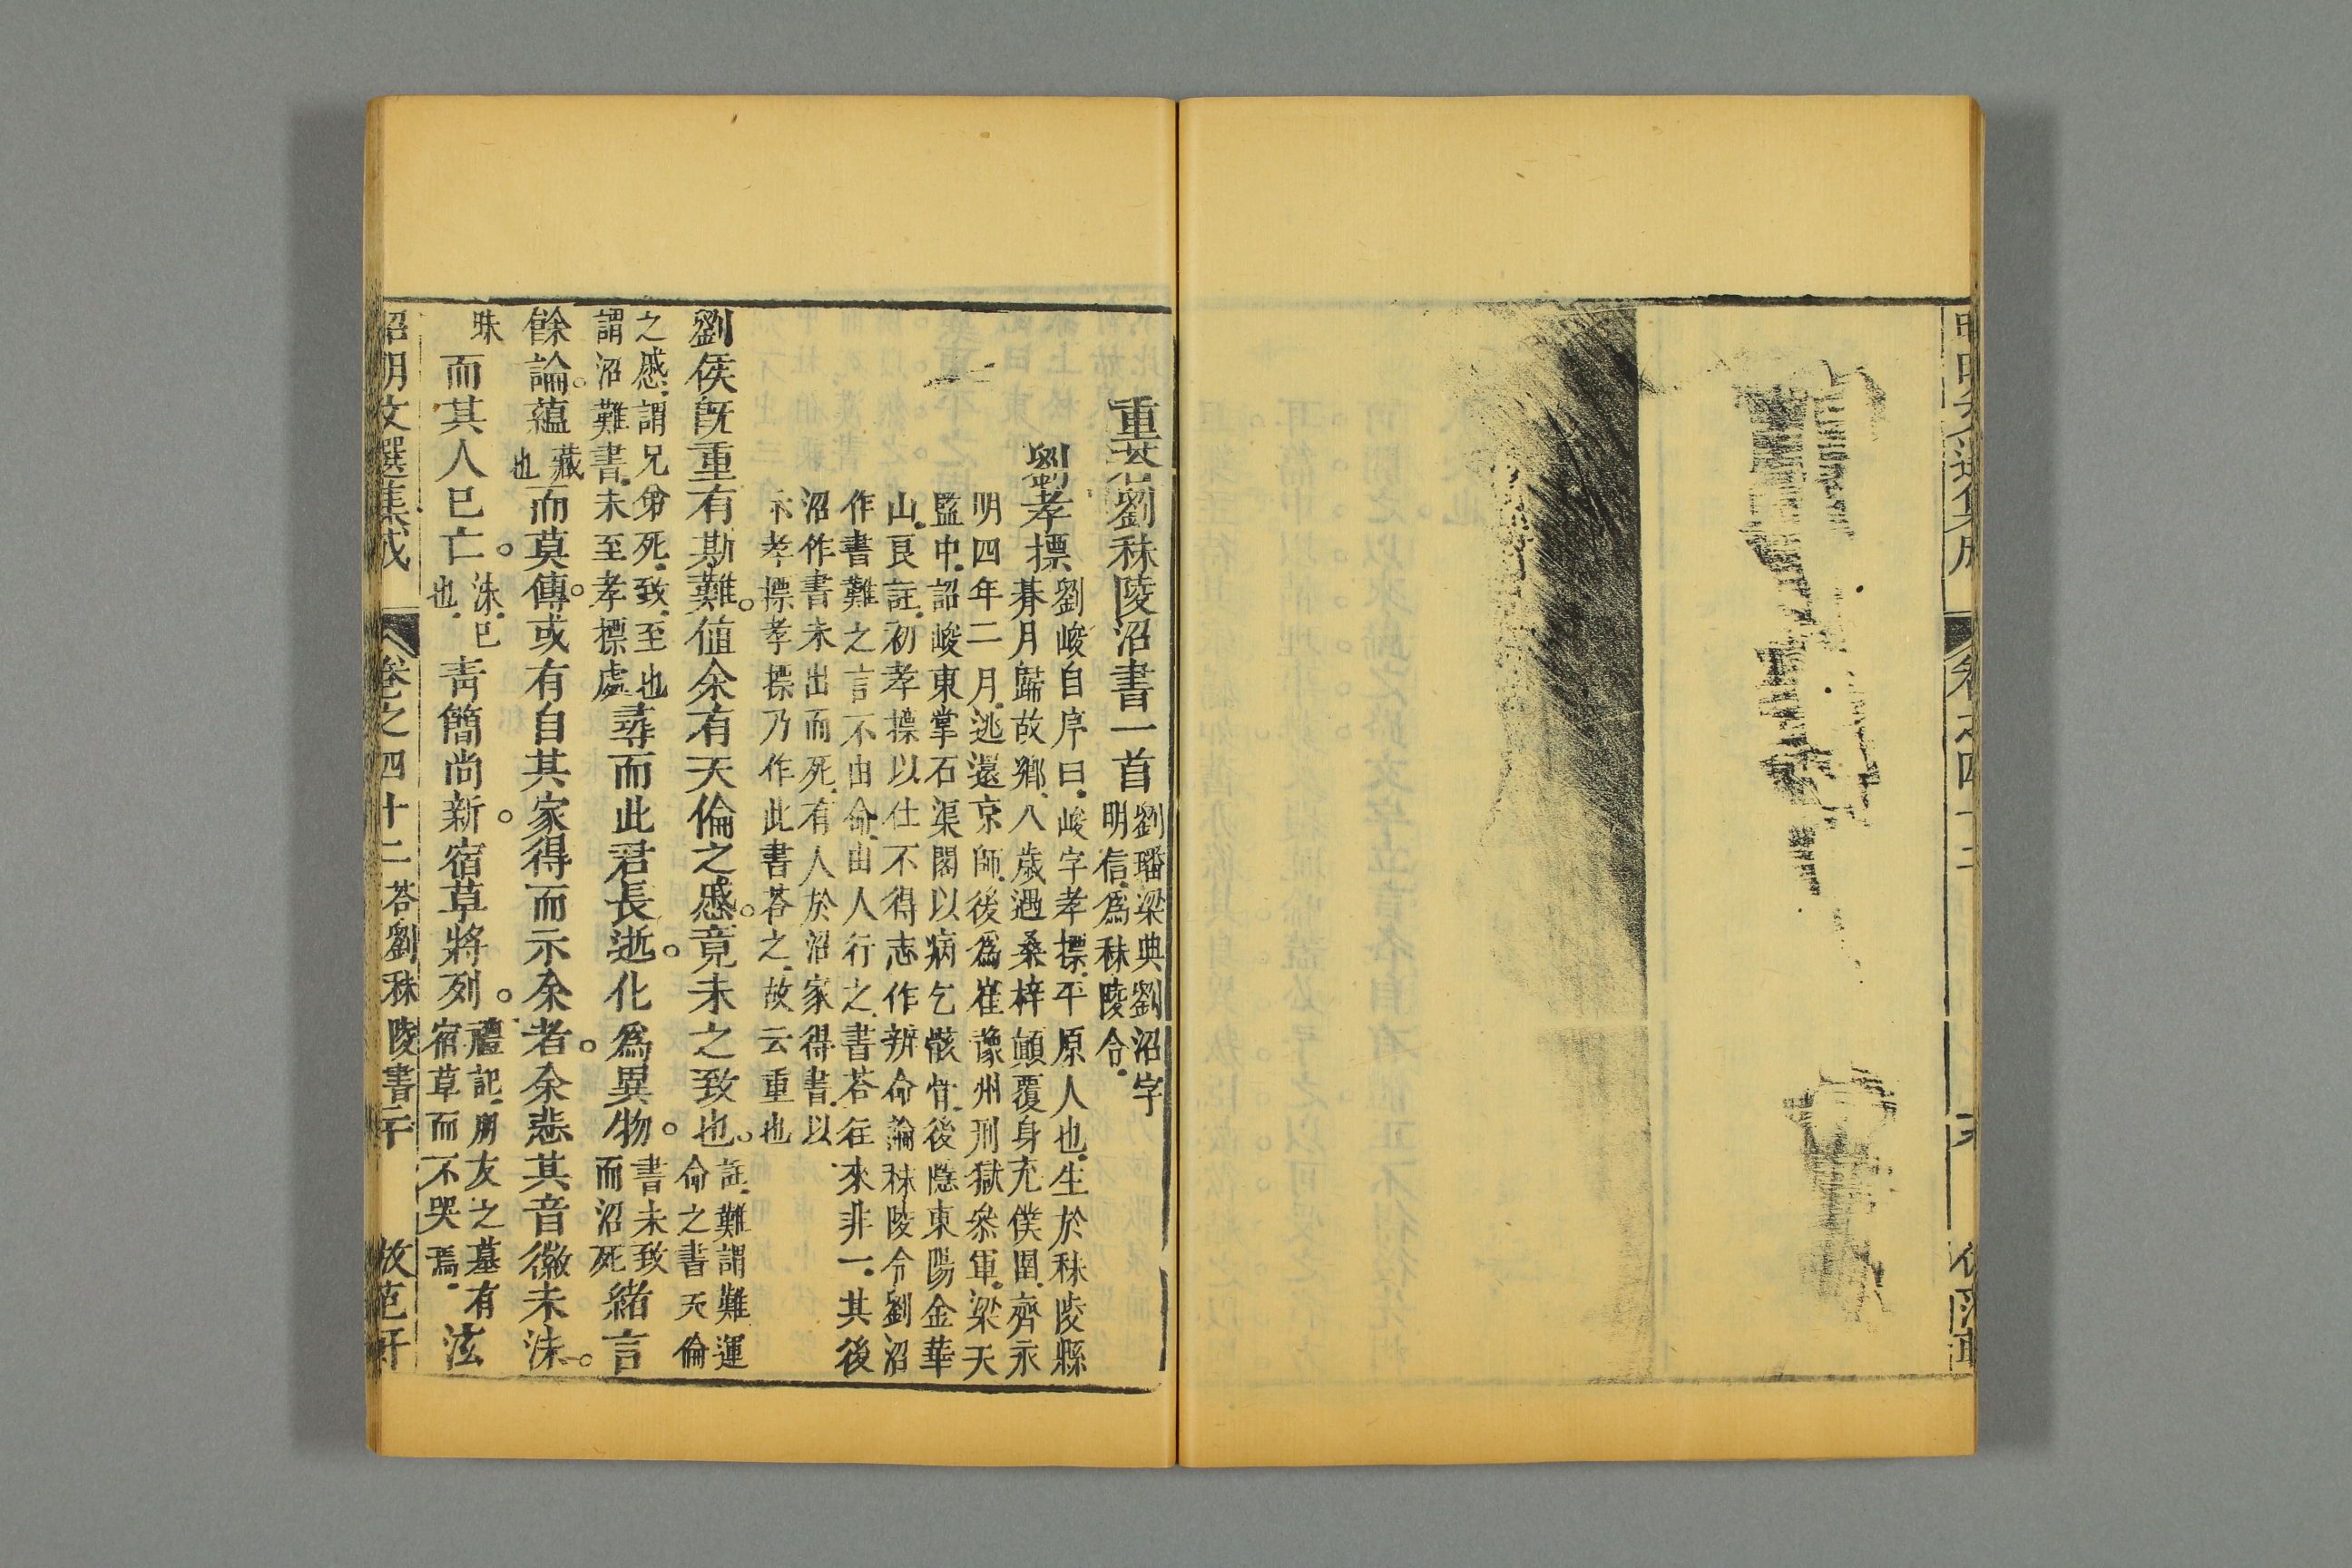 重答劉秣陵沼書一首
劉璠梁典劉沼字
明信爲秣陵令
劉孝標
劉峻自序曰峻字孝標平原人也生於秣陵縣
朞月歸故鄉八歲遇桑梓顚覆身充僕圉齊永
明四年二月逃還京師後爲崔豫州刑獄叅軍梁天
監中詔峻東掌石渠閣以病乞骸骨後隱東陽金華
山良註初孝摽以仕不得志作辨命論秣陵令劉沼
作書難之言不由命由人行之書荅往來非一其後
沼作書未出而死有人於沼家得書以
示孝摽孝摽乃作此書荅之故云重也
劉侯旣重有斯難値余有天倫之慼竟未之致也
註難謂難運
命之書天倫
之慼謂兄弟死致至也
謂沼難書未至孝標處
尋而此君長逝化爲異物
書未致
而沼死
緒言
餘論蘊
藏
也
而莫傳或有自其家得而示余者余悲其音徽未沬
沬已
也
昧
而其人已亡
靑簡尚新宿草將列
禮記朋友之墓有
宿草而不哭焉
泫
昭明文選集成
卷之四十二
荅劉秣陵書